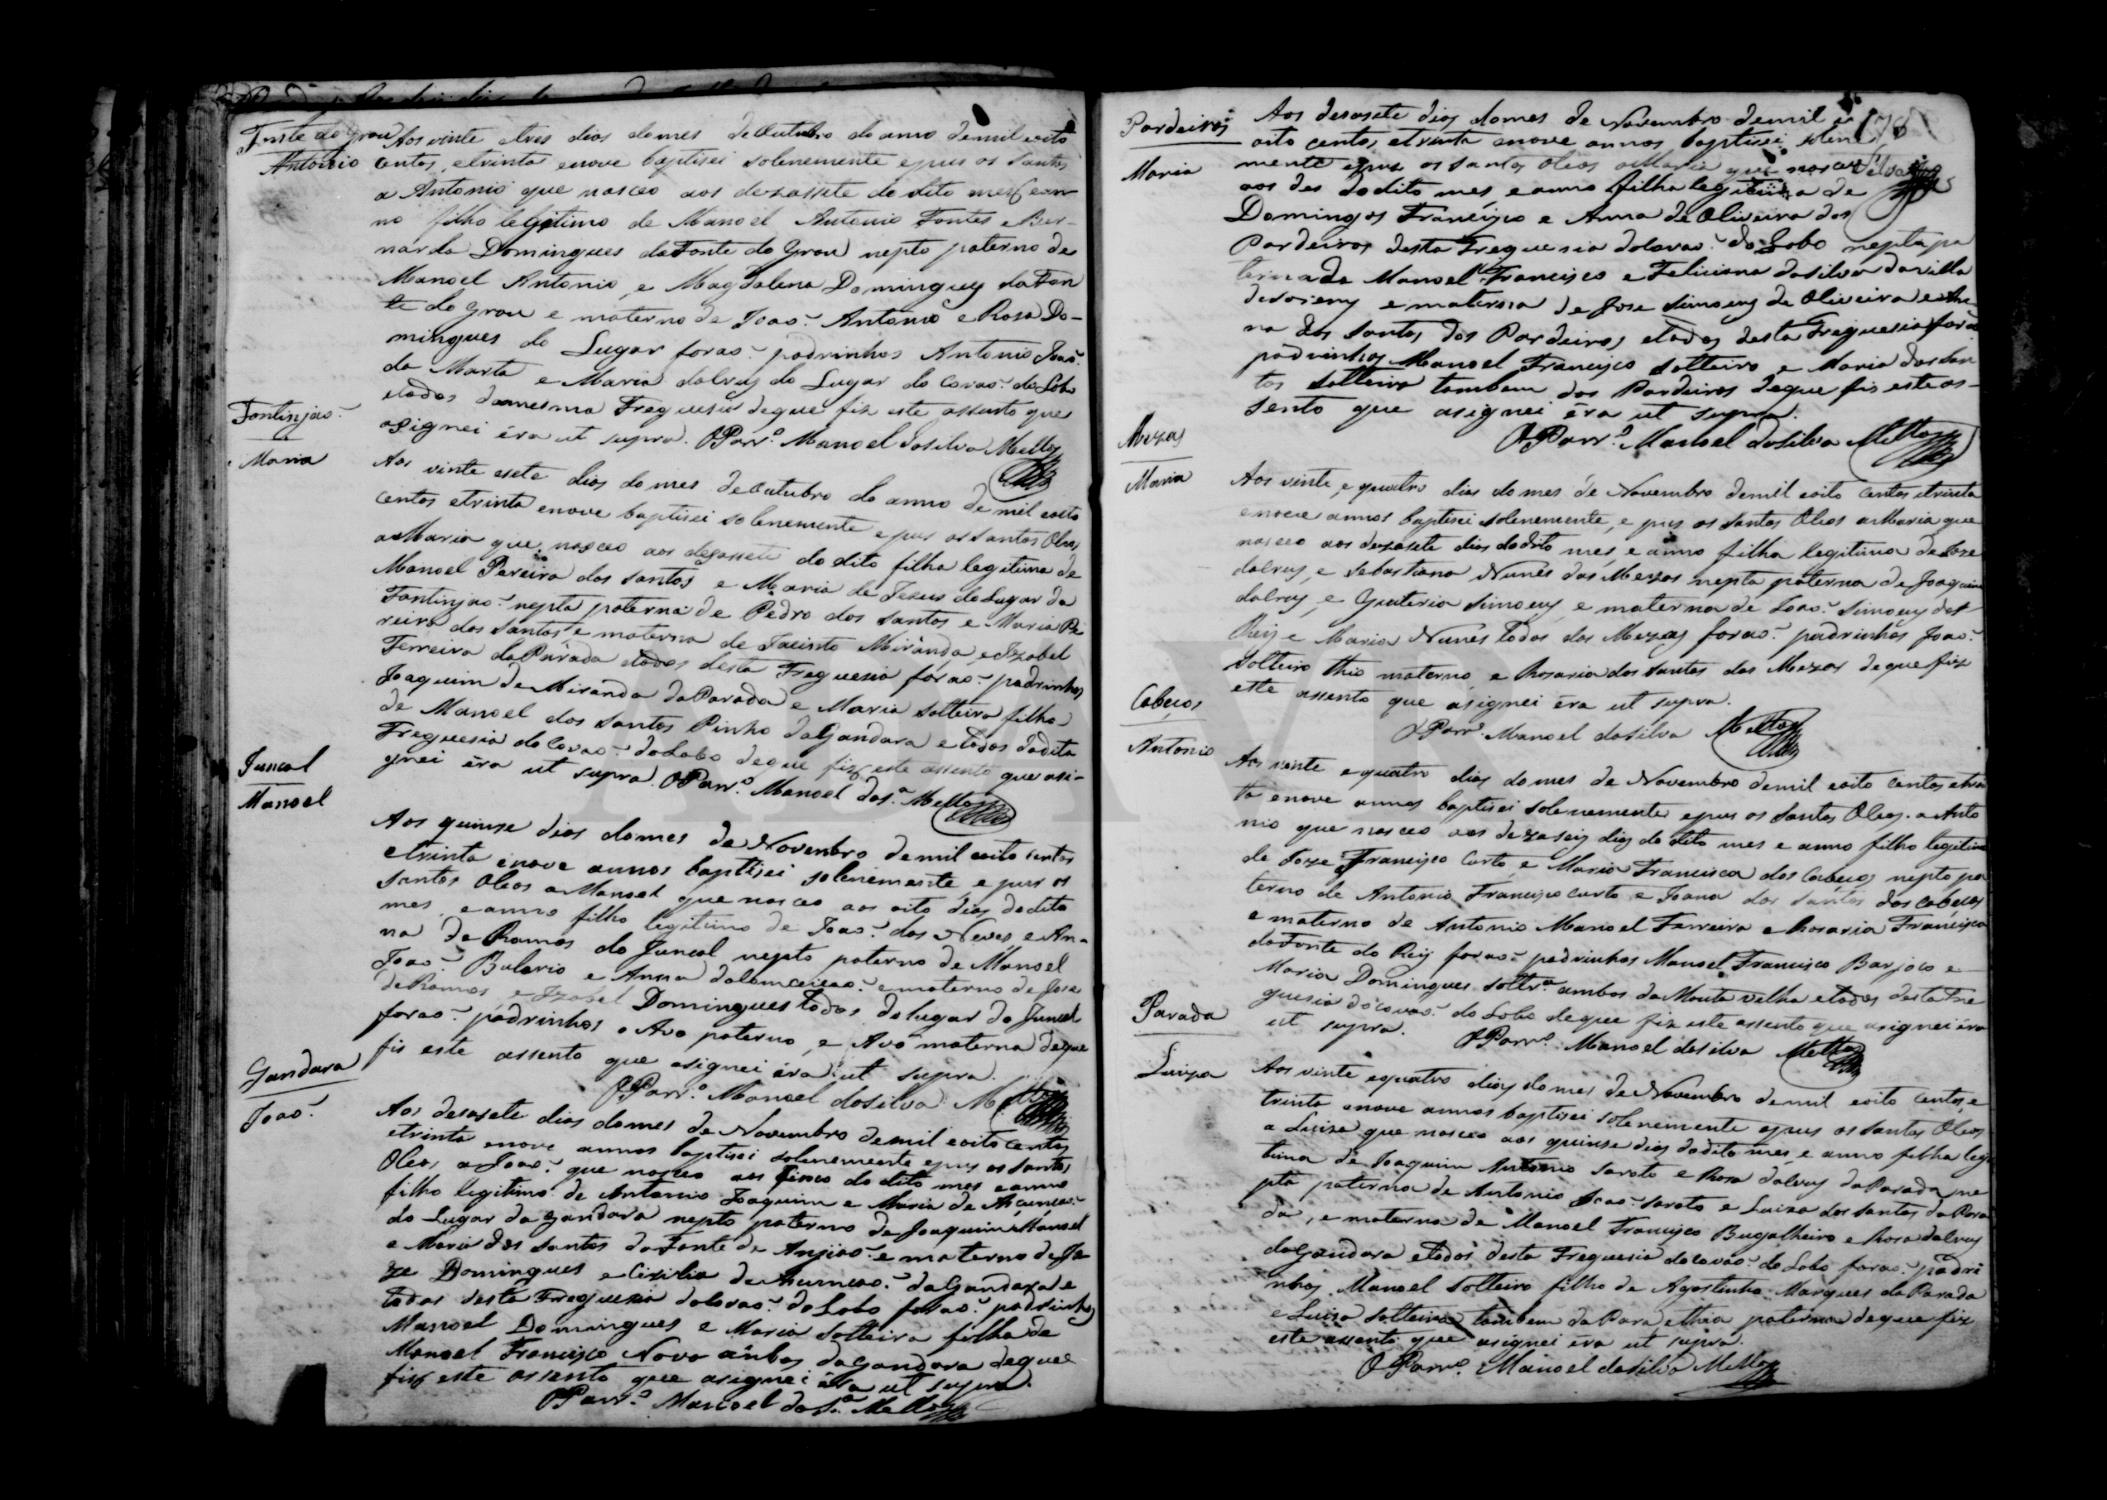 Fonte do Grou
Antonio
Aos vinte etres dias do mes de Outubro do anno de mil eoito
centos, etrinta enove baptisei solenemente epus os Santos
a Antonio que nasceo aos dezassete do dito mes e an-
no filho legitimo de Manoel Antonio Fontes e Ber-
narda Domingues da Fonte do Grou nepto paterno de
Manoel Antonio, e Magdalena Domingues da Fon
te do Grou e materno de Joaõ Antonio e Rosa Do-
mingues do Lugar foraõ padrinhos Antonio Joaõ
da Marta e Maria dalruz do Lugar do Covaõ do Lobo
etodos damesma Freguesia deque fiz este assento que
asignei éra ut supra. OParr.º Manoel dasilva Mello
Fontinjaõ
Maria
Aos vinte esete dias do mes de Outubro do anno de mil eoito
centos etrinta enove baptisei solenemente epus os santos Oleos
a Maria que nasceo aos dezassete do dito filha legitima de
Manoel Pereira dos santos e Maria de Jezus do Lugar da
Fontinjaõ nepta paterna de Pedro dos santos e Maria Pe
reira dos santos e materna de Jacinto Miranda, e Izabel
Ferreira da Parada etodos desta Freguesia foraõ padrinhos
Joaquim de Miranda da Parada e Maria solteira filha
de Manoel dos santos Pinho da Gandara e todos dadita
Freguesia do Covaõ do Lobo deque fiz este assento que asi-
gnei éra ut supra. OParr.º Manoel das.ª Mello
Juncal
Manoel
Aos quinse dias do mes de Novembro de mil eoito centos
etrinta enove annos baptisei solenemente e pus os
santos Oleos a Manoel que nasceo aos oito dias do dito
mes e anno filho legitimo de Joaõ das Neves e An-
na de Ramos do Juncal nepto paterno de Manoel
Joaõ Bulario e Anna daConceicaõ ematerno de Jose
deRamos, e Izabel Domingues todos do lugar do Juncal
foraõ padrinhos o Avo paterno, e Avó materna deque
fis este assento que asignei éra ut supra.
OParr.º Manoel dasilva Mello
Gandara
Joaõ
Aos desasete dias domes de Novembro demil eoito centos
etrinta enove annos baptisei solenemente epus os santos
Oleos a Joaõ que nasceo aos sinco do dito mes eanno
filho legitimo de Antonio Joaquim e Maria de Ascunçaõ
do Lugar da Gandara nepto paterno de Joaquim Manoel
e Maria dos santos da Fonte de Anjiaõ e materno de Jo
ze Domingues e Cizilia de Ascuncaõ da Gandara e
todos desta Freguezia doCovaõ do Lobo foraõ padrinhos
Manoel Domingues e Maria solteira filha de
Manoel Francisco Novo ambos daGandara deque
fiz este assento que asignei éra ut supra.
OParr.º Manoel das.ª Mello
Pardeiros
Maria
Aos desasete dias domes de Novembro demil e
oito centos etrinta enove annos baptisei solene
mente epus os santos Oleos aMaria que nasceo
aos des dodito mes e anno filha legitima de
Domingos Francisco e Anna de Oliveira dos
Pardeiros desta Freguesia doCovaõ do Lobo nepta pa
terna de Manoel Francisco e Feliciana dasilva da villa
desoreny e materna de Jose Simoens de Oliveira e An
na dos santos dos Pardeiros etodos desta Freguesia foraõ
padrinhos Manoel Francisco solteiro e Maria dos san
tos solteira tambem dos Pardeiros deque fis este as-
sento que asignei éra ut supra.
OParr.º Manoel dasilva Mello
Mezas
Maria
Aos vinte, e quatro dias do mes de Novembro demil eoito centos etrinta
enove annos baptisei solenemente, e pus os santos Oleos a Maria que
nasceo aos dezasete dias dodito mes, e anno filha legitima de Joze
dalruz, e Sebastiana Nunes das Mezas nepta paterna de Joaquim
dalruz, e Quiteria Simoens, e materna de Joaõ Simoens dos
Reis e Maria Nunes todos das Mezas foraõ padrinhos Joaõ
solteiro thio materno, e Rosaria dos santos das Mezas deque fiz
este assento que asignei éra ut supra.
OParr.º Manoel dasilva Mello
Cabeços
Antonio
Aos vinte equatro dias do mes de Novembro demil eoito centos etrin
ta enove annos baptisei solenemente epus os santos Oleos a Anto
nio que nasceo aos dezaseis dias do dito mes e anno filho legitimo
de Joze Francisco Curto, e Maria Francisca dos Cabeços nepto pa
terno de Antonio Francisco curto e Joana dos santos dos cabeços
e materno de Antonio Manoel Ferreira e Rosaria Francisca
daFonte do Reij foraõ padrinhos Manoel Francisco Barjoco e
Maria Domingues soltr.ª ambos da Mouta velha etodos desta Fre
guesia doCovaõ do Lobo deque fiz este assento que asignei éra
ut supra. OParr.º Manoel dasilva Mello
Parada
Luiza
Aos vinte equatro dias do mes de Novembro demil eoito centos, e
trinta enove annos baptisei solenemente epus os santos Oleos
a Luiza que nasceo aos quinse dias dodito mes, e anno filha legi
tima de Joaquim Antonio saroto e Rosa dalruz da Parada ne
pta paterna de Antonio Joaõ saroto e Luiza dos santos da Para
da, e materna de Manoel Francisco Bugalheiro e Rosa dalruz
daGandara etodos desta Freguesia docovaõ do Lobo foraõ padri
nhos Manoel solteiro filho de Agostinho Marques da Parada
e Luiza solteira tambem da Para ethia paterna deque fiz
este assento que asignei éra ut supra.
OParr.º Manoel dasilva Mello
ADAVR